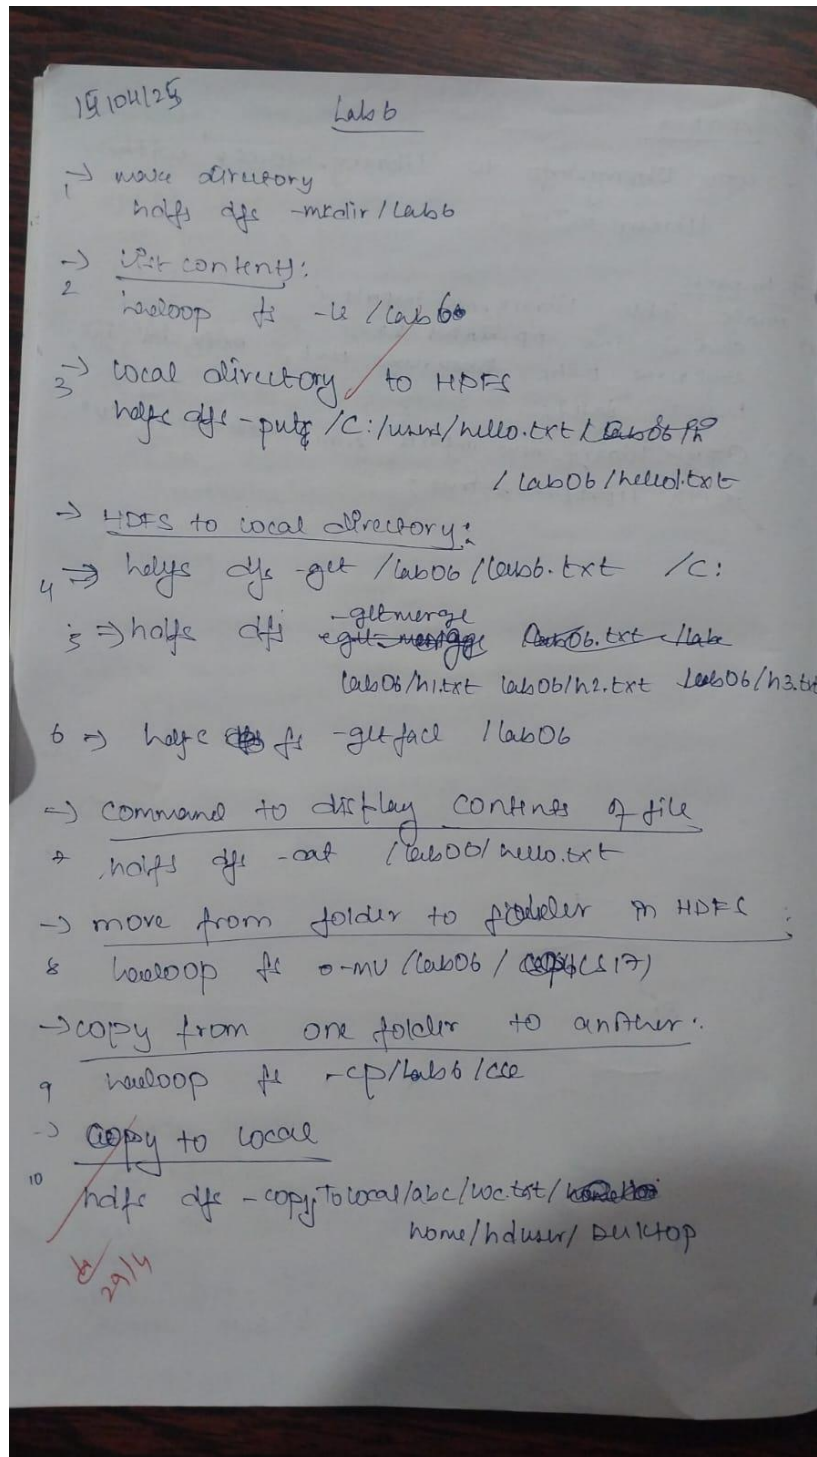 15/04/25
Lab 6
-> make directory
1
hdfs dfs -mkdir /Lab6
-> List contents:
2
hadoop fs -ls /Lab6
-> Local directory to HDFS
3
hdfs dfs -put /C:/users/hello.txt /
/Lab06/hello1.txt
-> HDFS to local directory:
4 => hdfs dfs -get /Lab06/Lab6.txt /C:
-getmerge
5 => hdfs dfs
Lab06/h1.txt Lab06/h2.txt Lab06/h3.txt
6 => hdfs fs -getfacl /Lab06
-> Command to display contents of file
7 hdfs dfs -cat /Lab06/hello.txt
-> move from folder to folder in HDFS :
8 hadoop fs -mv /Lab06 /
-> copy from one folder to another:
9 hadoop fs -cp /Lab6 /cse
-> Copy to local
10
hdfs dfs -copyToLocal /abc/wc.txt /
home/hduser/Desktop
29/4